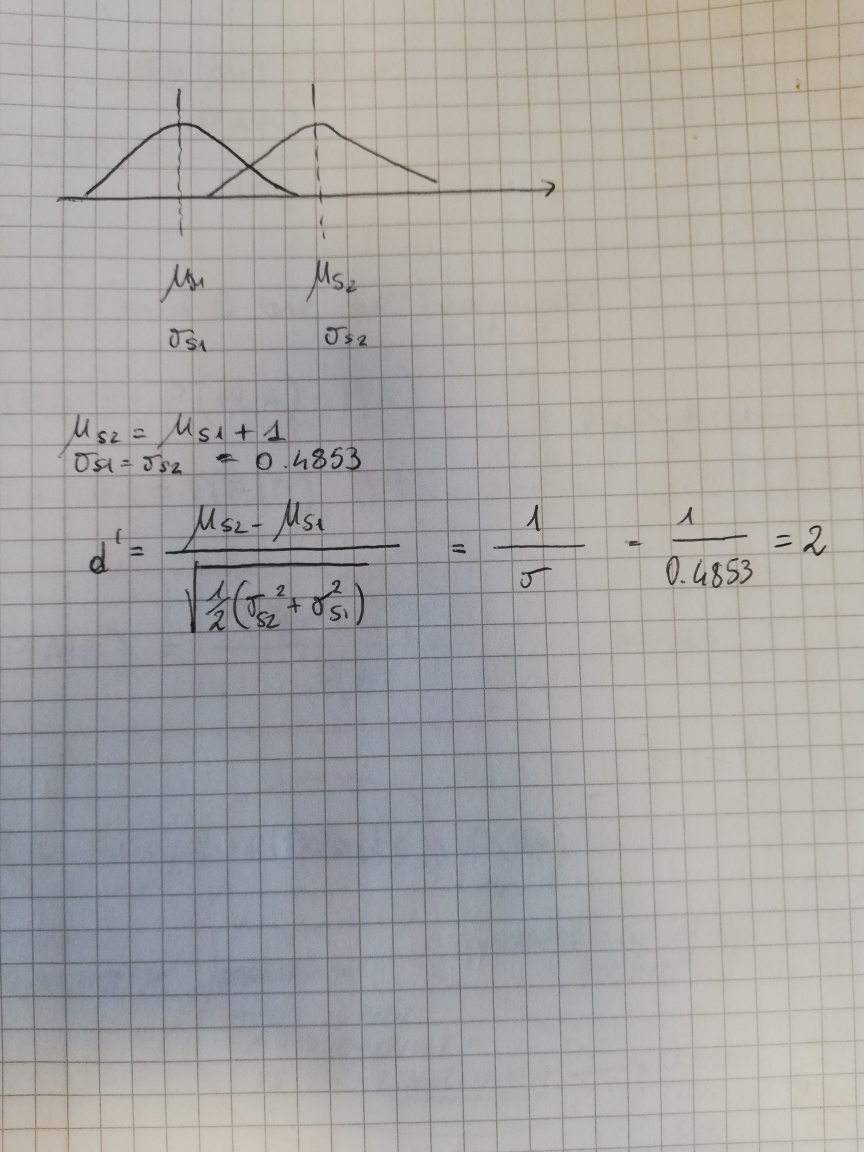 μs1 μs2
σs1 σs2
μs2 = μs1 + 1
σs1 = σs2 = 0.4853
d' = (μs2 - μs1) / √(1/2 (σs2² + σs1²)) = 1/σ = 1/0.4853 = 2